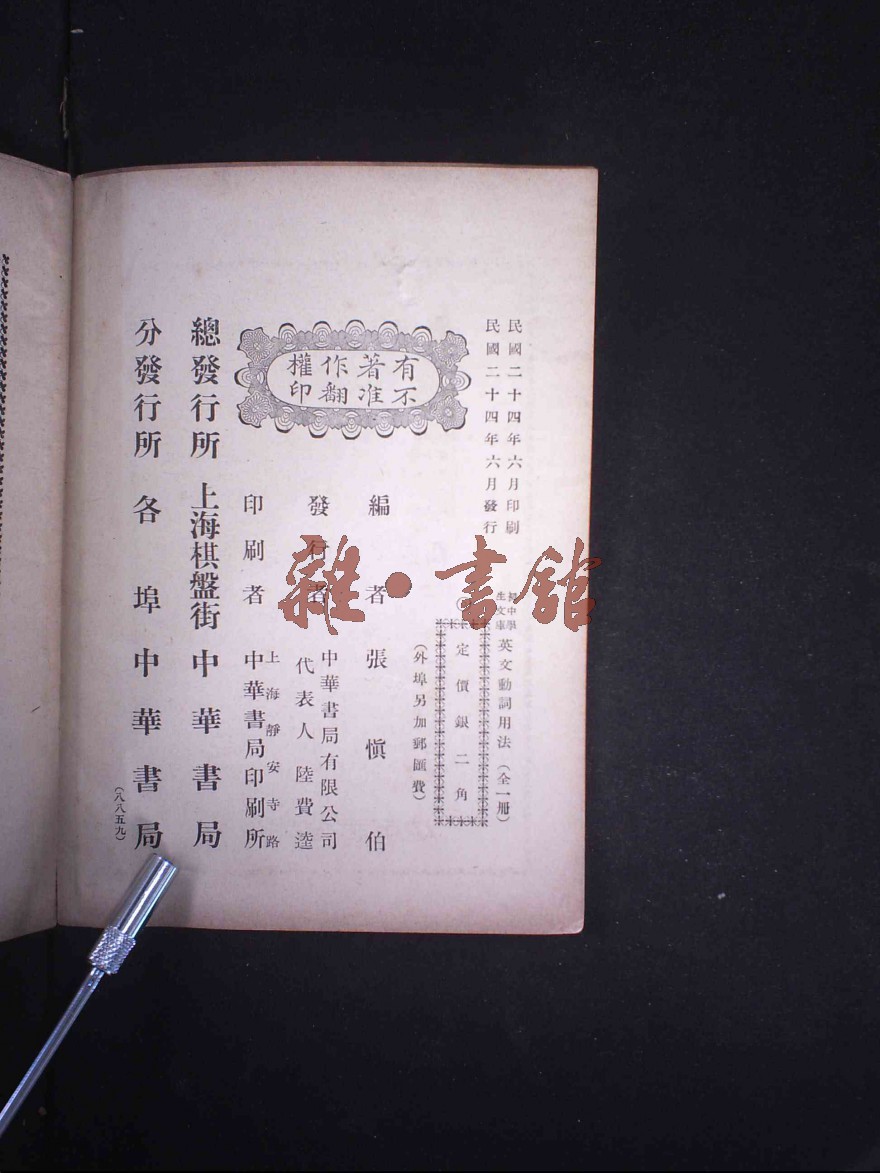 民國二十四年六月印刷
民國二十四年六月發行
初中學生文庫 英文動詞用法（全一冊）
定價銀二角
（外埠另加郵匯費）
有著作權
不准翻印
編者 張慎伯
發行者 中華書局有限公司
代表人陸費逵
印刷者 上海靜安寺路
中華書局印刷所
總發行所 上海棋盤街 中華書局
分發行所 各埠 中華書局
（八八五九）
雜·書館